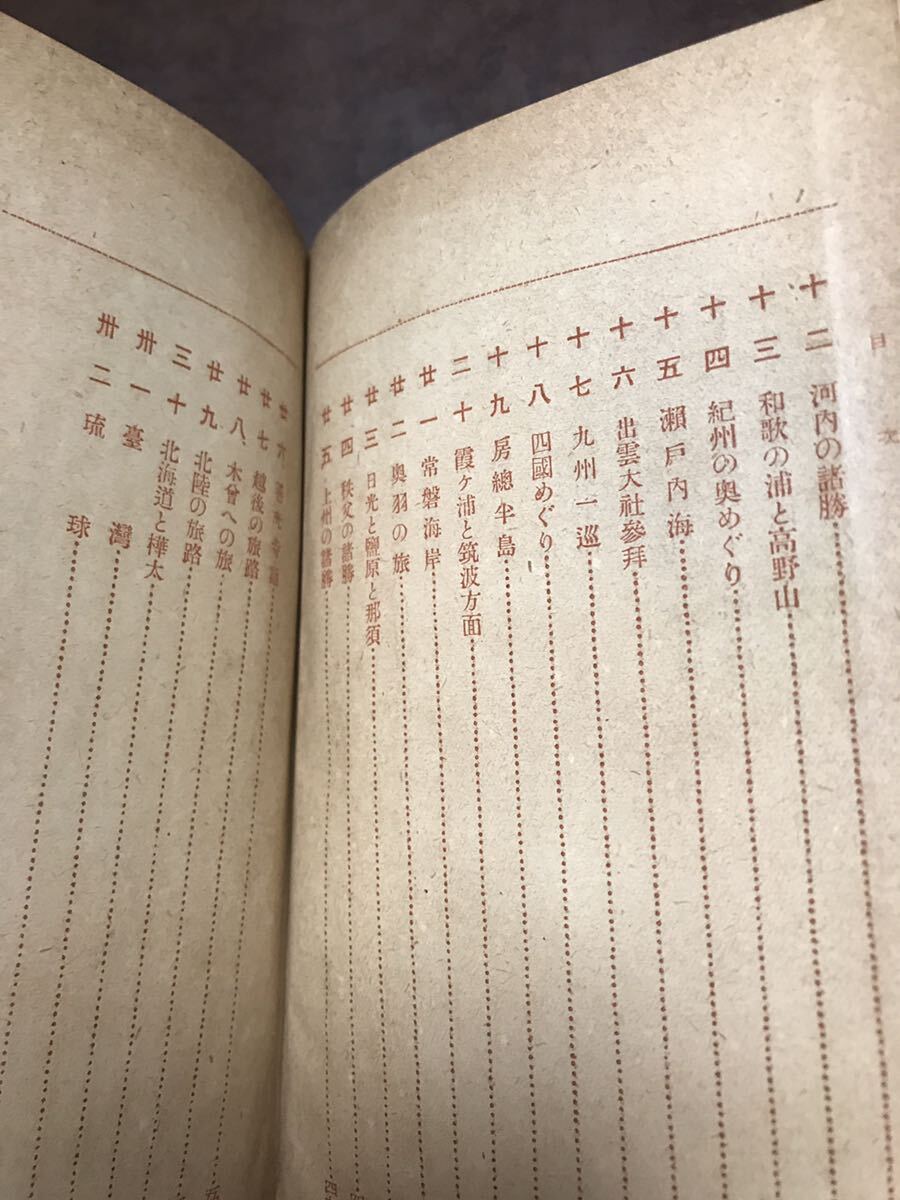 目次
十二 河内の諸勝
十三 和歌の浦と高野山
十四 紀州の奥めぐり
十五 瀬戸内海
十六 出雲大社參拜
十七 九州一巡
十八 四國めぐり
十九 房總半島
二十 霞ヶ浦と筑波方面
廿一 常磐海岸
廿二 奥羽の旅
廿三 日光と鹽原と那須
廿四 秩父の諸勝
廿五 上州の諸勝
廿六
廿七 越後の旅路
廿八 木曾への旅
廿九 北陸の旅路
三十 北海道と樺太
卅一 臺灣
卅二 琉球